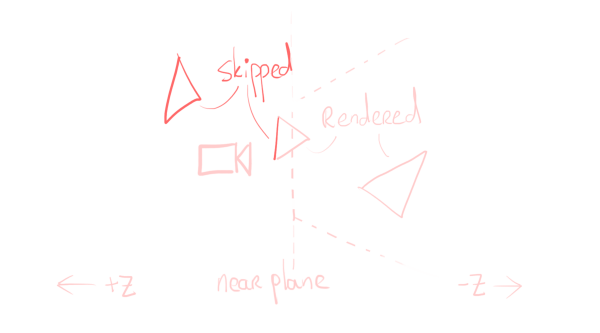 skipped
Rendered
← +Z
near plane
-Z →